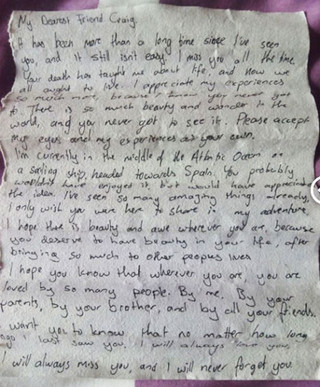 My Dearest Friend Craig,
It has been more than a long time since I've seen
you, and it still isn't easy. I miss you all the time.
Your death has taught me about life, and how we
all ought to live. I appreciate my experiences
so much more, because I know you never got
it. There is so much beauty and wonder in the
world, and you never got to see it. Please accept
my eyes and my experiences as your own.
I'm currently in the middle of the Atlantic Ocean on
a sailing ship, headed towards Spain. You probably
wouldn't have enjoyed it, but would have appreciated
the idea. I've seen so many amazing things already,
I only wish you were here to share in my adventure.
I hope there is beauty and awe wherever you are, because
you deserve to have beauty in your life, after
bringing so much to other peoples lives.
I hope you know that wherever you are, you are
loved by so many people. By me. By your
parents, by your brother, and by all your friends.
want you to know that no matter how long
ago I last saw you, I will always love you,
I will always miss you, and I will never forget you